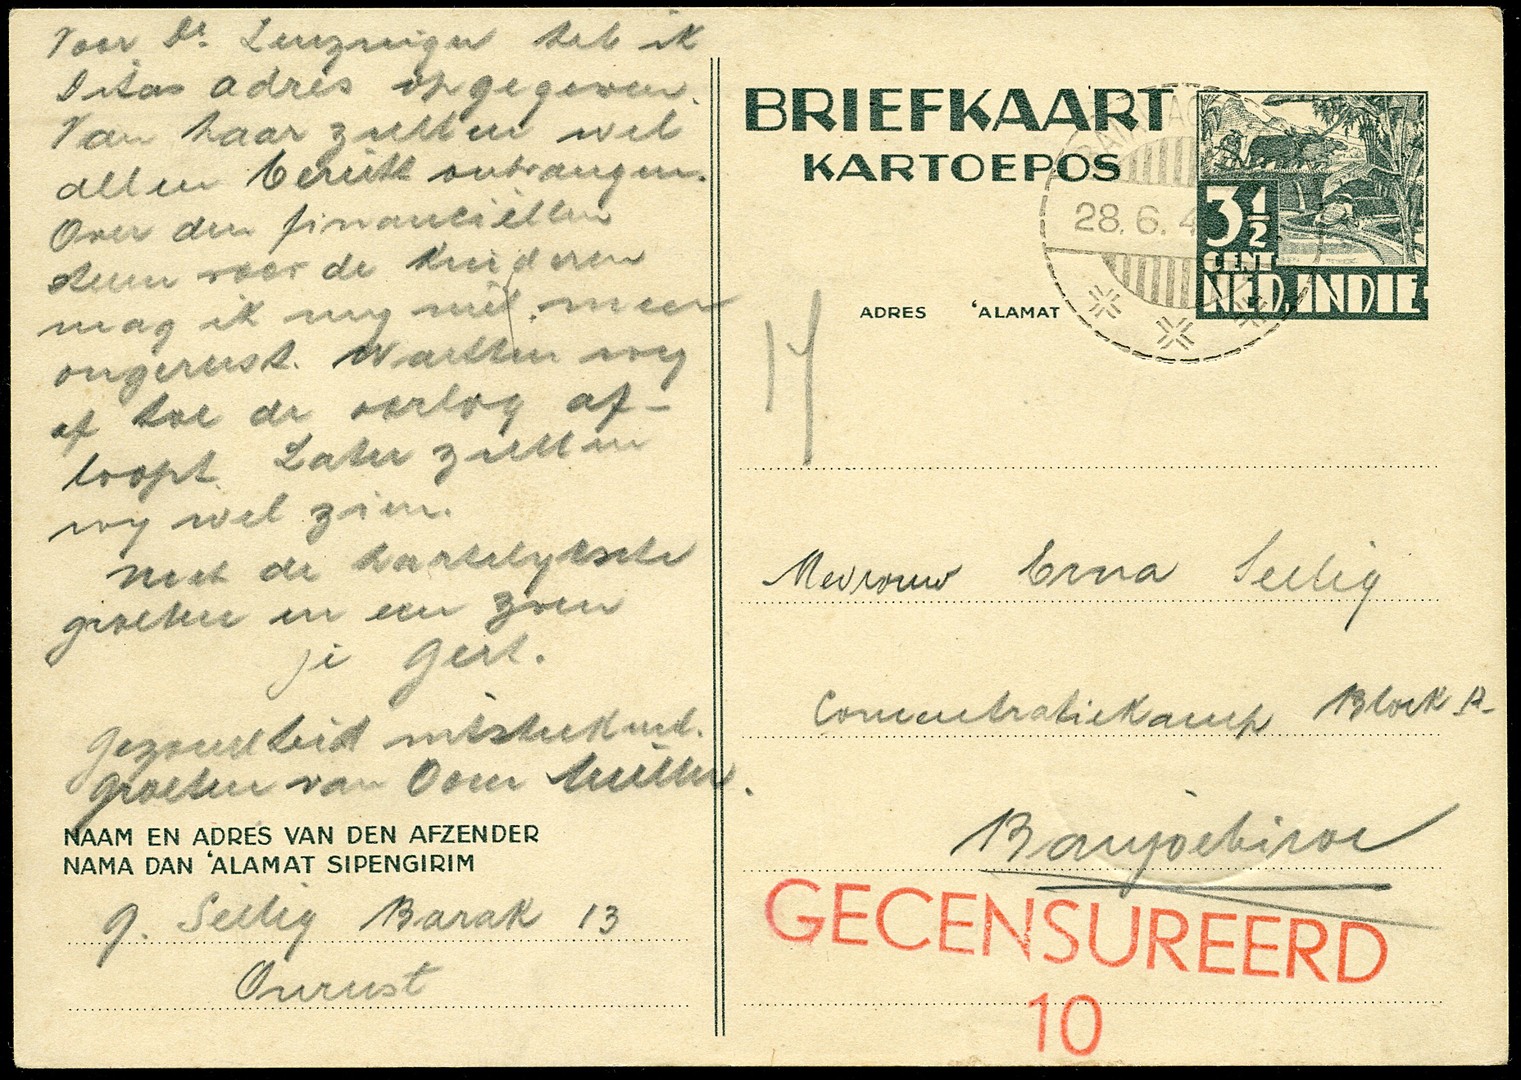 Voor Dr. heb ik
Ditas adres opgegeven.
Van haar zullen wel
allen bericht ontvangen.
Over den financiëllen
steun voor de kinderen
mag ik my niet meer
ongerust. Wachten wy
af hoe de oorlog af-
loopt. Later zullen
wy wel zien.
Met de hartelykste
groeten en een zoen
je Gert.
Gezondheid uitstekend.
Groeten van Oom
NAAM EN ADRES VAN DEN AFZENDER
NAMA DAN 'ALAMAT SIPENGIRIM
G. Seelig Barak 13
Onrust
BRIEFKAART
KARTOEPOS
28.6.4
3½
CENT
NED. INDIE
ADRES 'ALAMAT
14
Mevrouw Erna Seelig
Concentratiekamp Block A
Banjoebiroe
GECENSUREERD
10